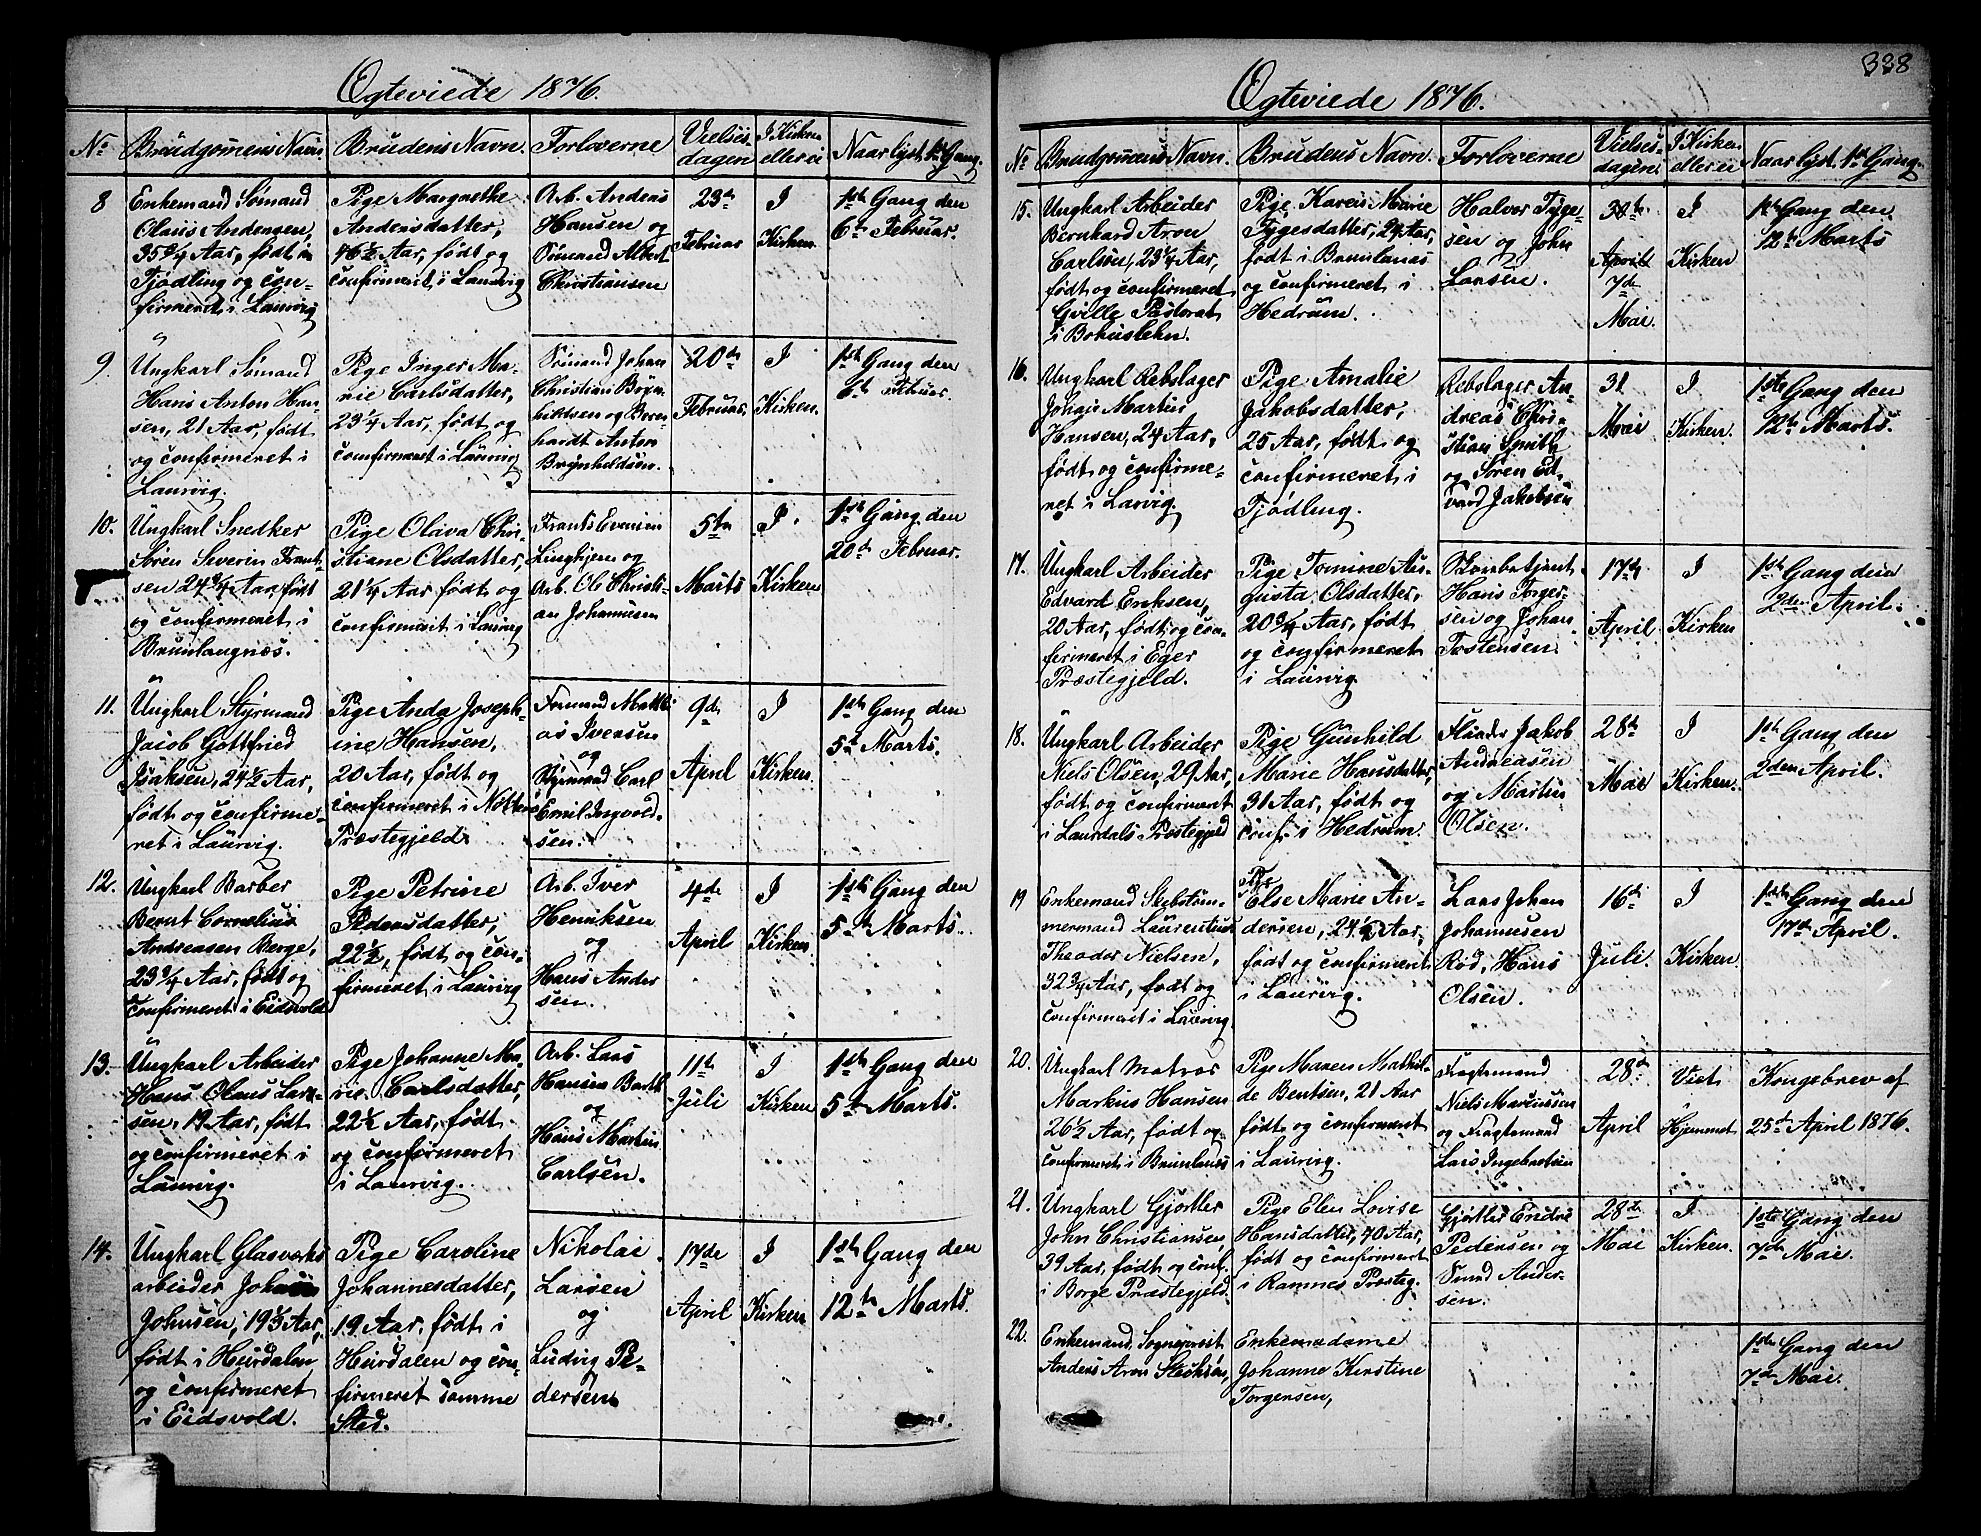 Ægteviede 1876.
No
Brudgomens Navn.
Brudens Navn.
Forloverne
Vielses-
dagen
I Kirken
eller ei
Naar lyst 1ste Gang.
8
Enkemand Sømand
Olaus Andersen,
35 3/4 Aar, født i
Tjødling og con-
firmeret i Laurvig
Pige Margrethe
Andersdatter,
46 1/2 Aar, født og
confirmeret i Laurvig
Arb. Andreas
Hansen og
Sømand Albert
Christiansen
23de
Februar
I
Kirken
1ste Gang den
6te Februar.
9.
Ungkarl Sømand
Hans Anton Han-
sen, 21 Aar, født
og confirmeret i
Laurvig.
Pige Inger Ma-
rie Carlsdatter,
23 1/4 Aar, født og
confirmeret i Laurvig
Sømand Johan
Christian Bryn-
hildsen og Bern-
hardt Anton
Brynhildsen.
20de
Februar.
I
Kirken.
1ste Gang den
6te Februar.
10.
Ungkarl Snedker
Søren Severin Frant-
sen 24 3/4 Aar, født
og confirmeret i
Brunlangnæs.
Pige Olava Chri-
stiane Olsdatter,
21 1/4 Aar født og
confirmeret i Laurvig
Frants Evensen
Linghjem og
Arb. Ole Christi-
an Johannesen
5te
Marts
I
Kirken
1ste Gang den
20de Februar.
11.
Ungkarl Styrmand
Jacob Gottfried
Isaksen, 24 1/2 Aar,
født og confirme-
ret i Laurvig.
Pige Anda Joseph-
ine Hansen,
20 Aar, født og
confirmeret i Nøtterø
Præstegjeld
Formand Mathi-
as Iversen
og
Styrmand Carl
Emil Ingvold-
sen.
9de
April
I
Kirken.
1ste Gang den
5te Marts.
12.
Ungkarl Barber
Bernt Cornelius
Andreasen Berge,
23 3/4 Aar, født og
confirmeret i Eidsvold
Pige Petrine
Pedersdatter,
22 1/2, født og con-
firmeret i Laurvig
Arb. Iver
Henriksen
og
Hans Ander
sen.
4de
April
I
Kirken.
1ste Gang den
5te Marts.
13.
Ungkarl Arbeider
Hans Olaus Lar-
sen, 19 Aar, født
og confirmeret i
Laurvig.
Pige Johanne Ma-
rie Carlsdatter,
22 1/2 Aar, født
og confirmeret
i Laurvig.
Arb. Lars
Hansen Barth
og
Hans Martin
Carlsen.
11te
Juli
I
Kirken
1ste Gang den
5te Marts.
14.
Ungkarl Glasværks
arbeider Johan
Johnsen, 19 1/2 Aar,
født i Hurdalen
og confirmeret
i Eidsvold.
Pige Caroline
Johannesdatter,
19 Aar, født i
Hurdalen og con-
firmeret samme
Sted.
Nikolai
Larsen
og
Ludvig Pe-
dersen
17de
April
I
Kirken
1ste Gang den
12te Marts.
338
Ægteviede 1876.
No
Brudgomens Navn.
Brudens Navn
Forloverne
Vielses-
dagen
I Kirken
eller ei
Naar lyst 1ste Gang.
15.
Ungkarl Arbeider
Bernhard Aron
Carlsen, 23 1/4 Aar,
født og confirmeret
Qville Pastorat
i Bohuslehn.
Pige Karen Marie
Tygesdatter, 24 Aar,
født i Brunlanæs
og confirmeret i
Hedrum.
Halvor Tyge-
sen og John
Larsen.
30te
April
7de
Mai.
I
Kirken
1ste Gang den
12te Marts
16.
Ungkarl Rebslager
Johan Martin
Hansen, 24 Aar,
født og confirme-
ret i Larvig.
Pige Amalie
Jakobsdatter,
25 Aar, født og
confirmeret i
Tjødling.
Rebslager An-
dreas Chri-
stian Smith
og Søren Ed-
vard Jakobsen
31
Mai
I
Kirken.
1ste Gang den
12te Marts.
17.
Ungkarl Arbeider
Edvard Eriksen,
20 Aar, født og con-
firmeret i Eger
Præstegjeld.
Pige Tomine Au-
gusta Olsdatter,
20 3/4 Aar, født
og confirmeret
i Laurvig.
Hans Torger-
sen og Johan
Tostensen
17de
April
I
Kirken
1ste Gang den
2den April.
18.
Ungkarl Arbeider
Niels Olsen, 29 Aar,
født og confirmeret
i Laurdals Præstegjeld
Pige Gunhild
Marie Hansdatter,
31 Aar, født og
conf. i Hedrum.
Jakob
Andreasen
og Martin
Olsen.
28de
Mai
I
Kirken.
1ste Gang den
2den April.
19
Enkemand Skibstøm-
mermand Laurentius
Theodor Nielsen,
32 3/4 Aar, født og
confirmeret i Laurvig
Pige
Else Marie An-
dersen, 24 1/2 Aar,
født og confirmeret
i Laurvig.
Lars Johan
Johannesen
Rød, Hans
Olsen.
16de
Juli.
I
Kirken.
1ste Gang den
17de April.
20.
Ungkarl Matros
Markus Hansen
26 1/2 Aar, født og
confirmeret i Brunlanæs
Pige Maren Mathil-
de Bentsen, 21 Aar
født og confirmeret
i Laurvig.
Fragtemand
Niels Marcussen
og Fragtemand
Lars Ingebretsen
28de
April
Viet
i
Hjemmet
Kongebrev af
25de April 1876.
21.
Ungkarl Gjørtler
John Christiansen,
39 Aar, født og conf.
i Borge Præstegjeld.
Pige Elen Lovise
Hansdatter, 40 Aar,
født og confirmeret
i Ramnes Præsteg.
Gjørtler Endre
Pedersen og
Smed Ander-
sen.
28de
Mai
I
Kirken.
1ste Gang den
7de Mai.
22.
Enkemand, Sogneprest
Anders Aron
Enkemadame
Johanne Kirstine
Torgersen,
1ste Gang den
7de Mai.